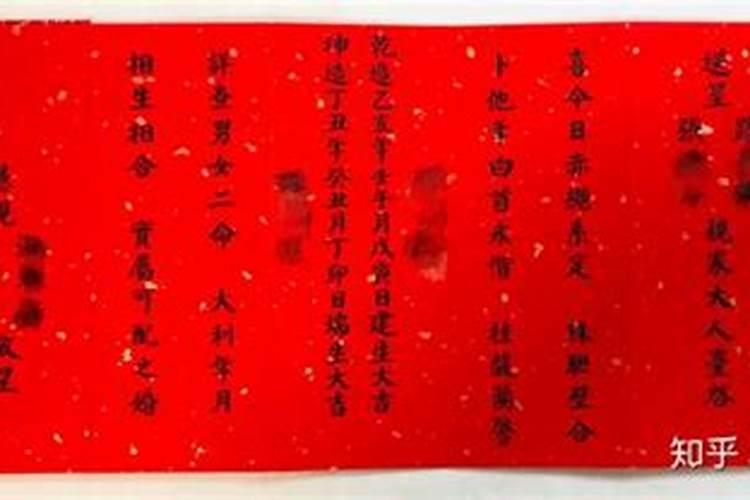 送呈 親家大人臺啓
張
喜今日赤繩系定 珠聯璧合
卜他年白首永偕 桂馥蘭馨
乾造乙亥年壬午月戊寅日建生大吉
坤造丁丑年癸丑月丁卯日端生大吉
詳查男女二命 大利年月
相生相合 實屬可配之婚
敬呈
知乎